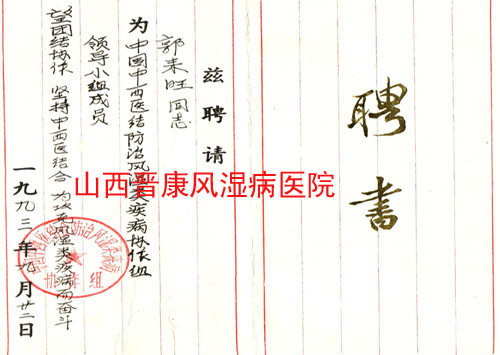 聘書
兹聘请
郭来旺同志
为中国中西医结防治风湿类疾病协作组
领导小组成员
望团结协作 坚持中西医结合 为攻克风湿类疾病而奋斗
一九九三年九月廿三日
山西晋康风湿病医院